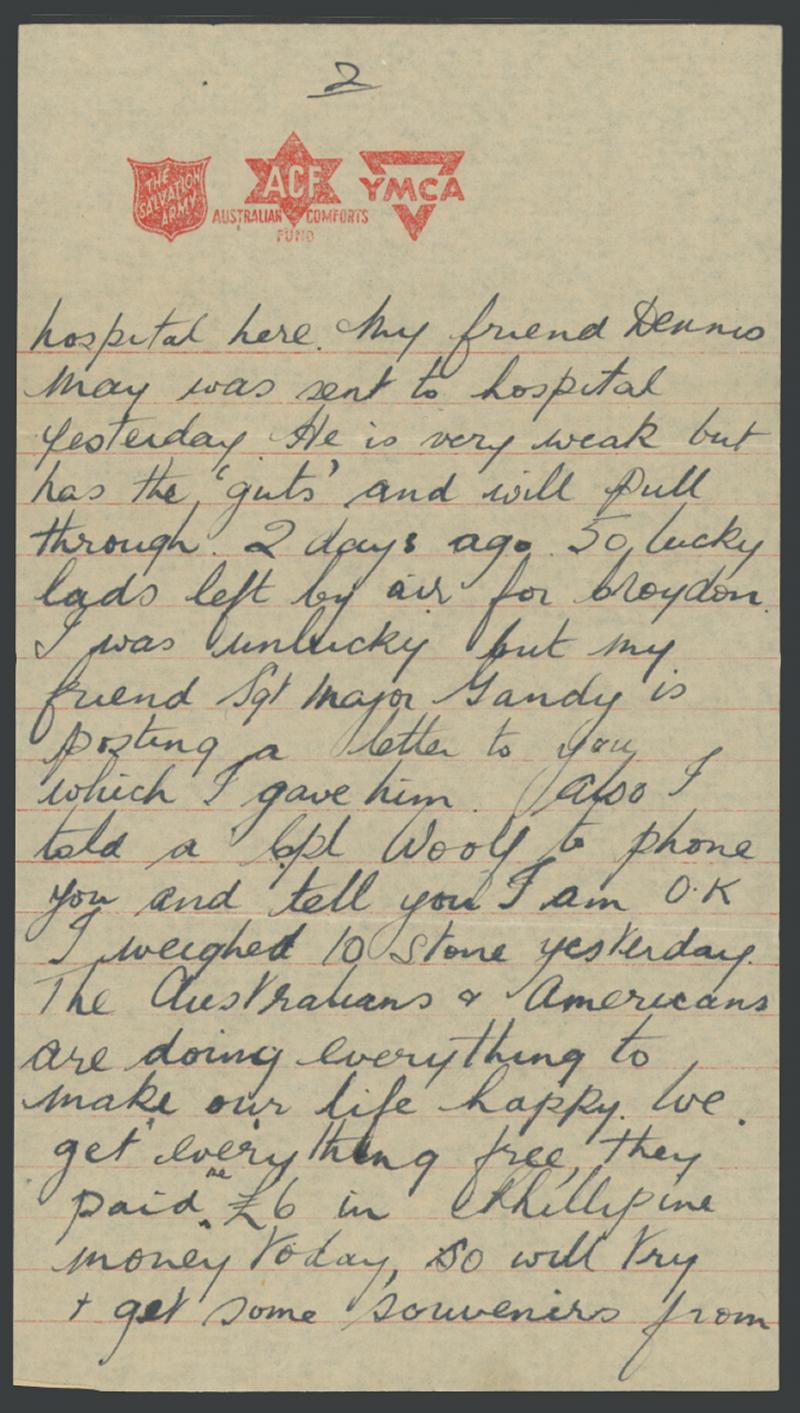 2
THE
SALVATION
ARMY
ACF
AUSTRALIAN COMFORTS
FUND
YMCA
hospital here. My friend Dennis
May was sent to hospital
yesterday. He is very weak but
has the 'guts' and will pull
through. 2 days ago 50, lucky
lads left by air for Croydon.
I was unlucky but my
friend Sgt Major Gandy is
posting a letter to you
which I gave him. Also I
told a Cpl Woolf to phone
you and tell you I am O.K
I weighed 10 Stone yesterday.
The Australians & Americans
are doing everything to
make our life happy. We
get everything free, they
paid me £6 in Phillipine
money today, so will try
+ get some souvenirs from